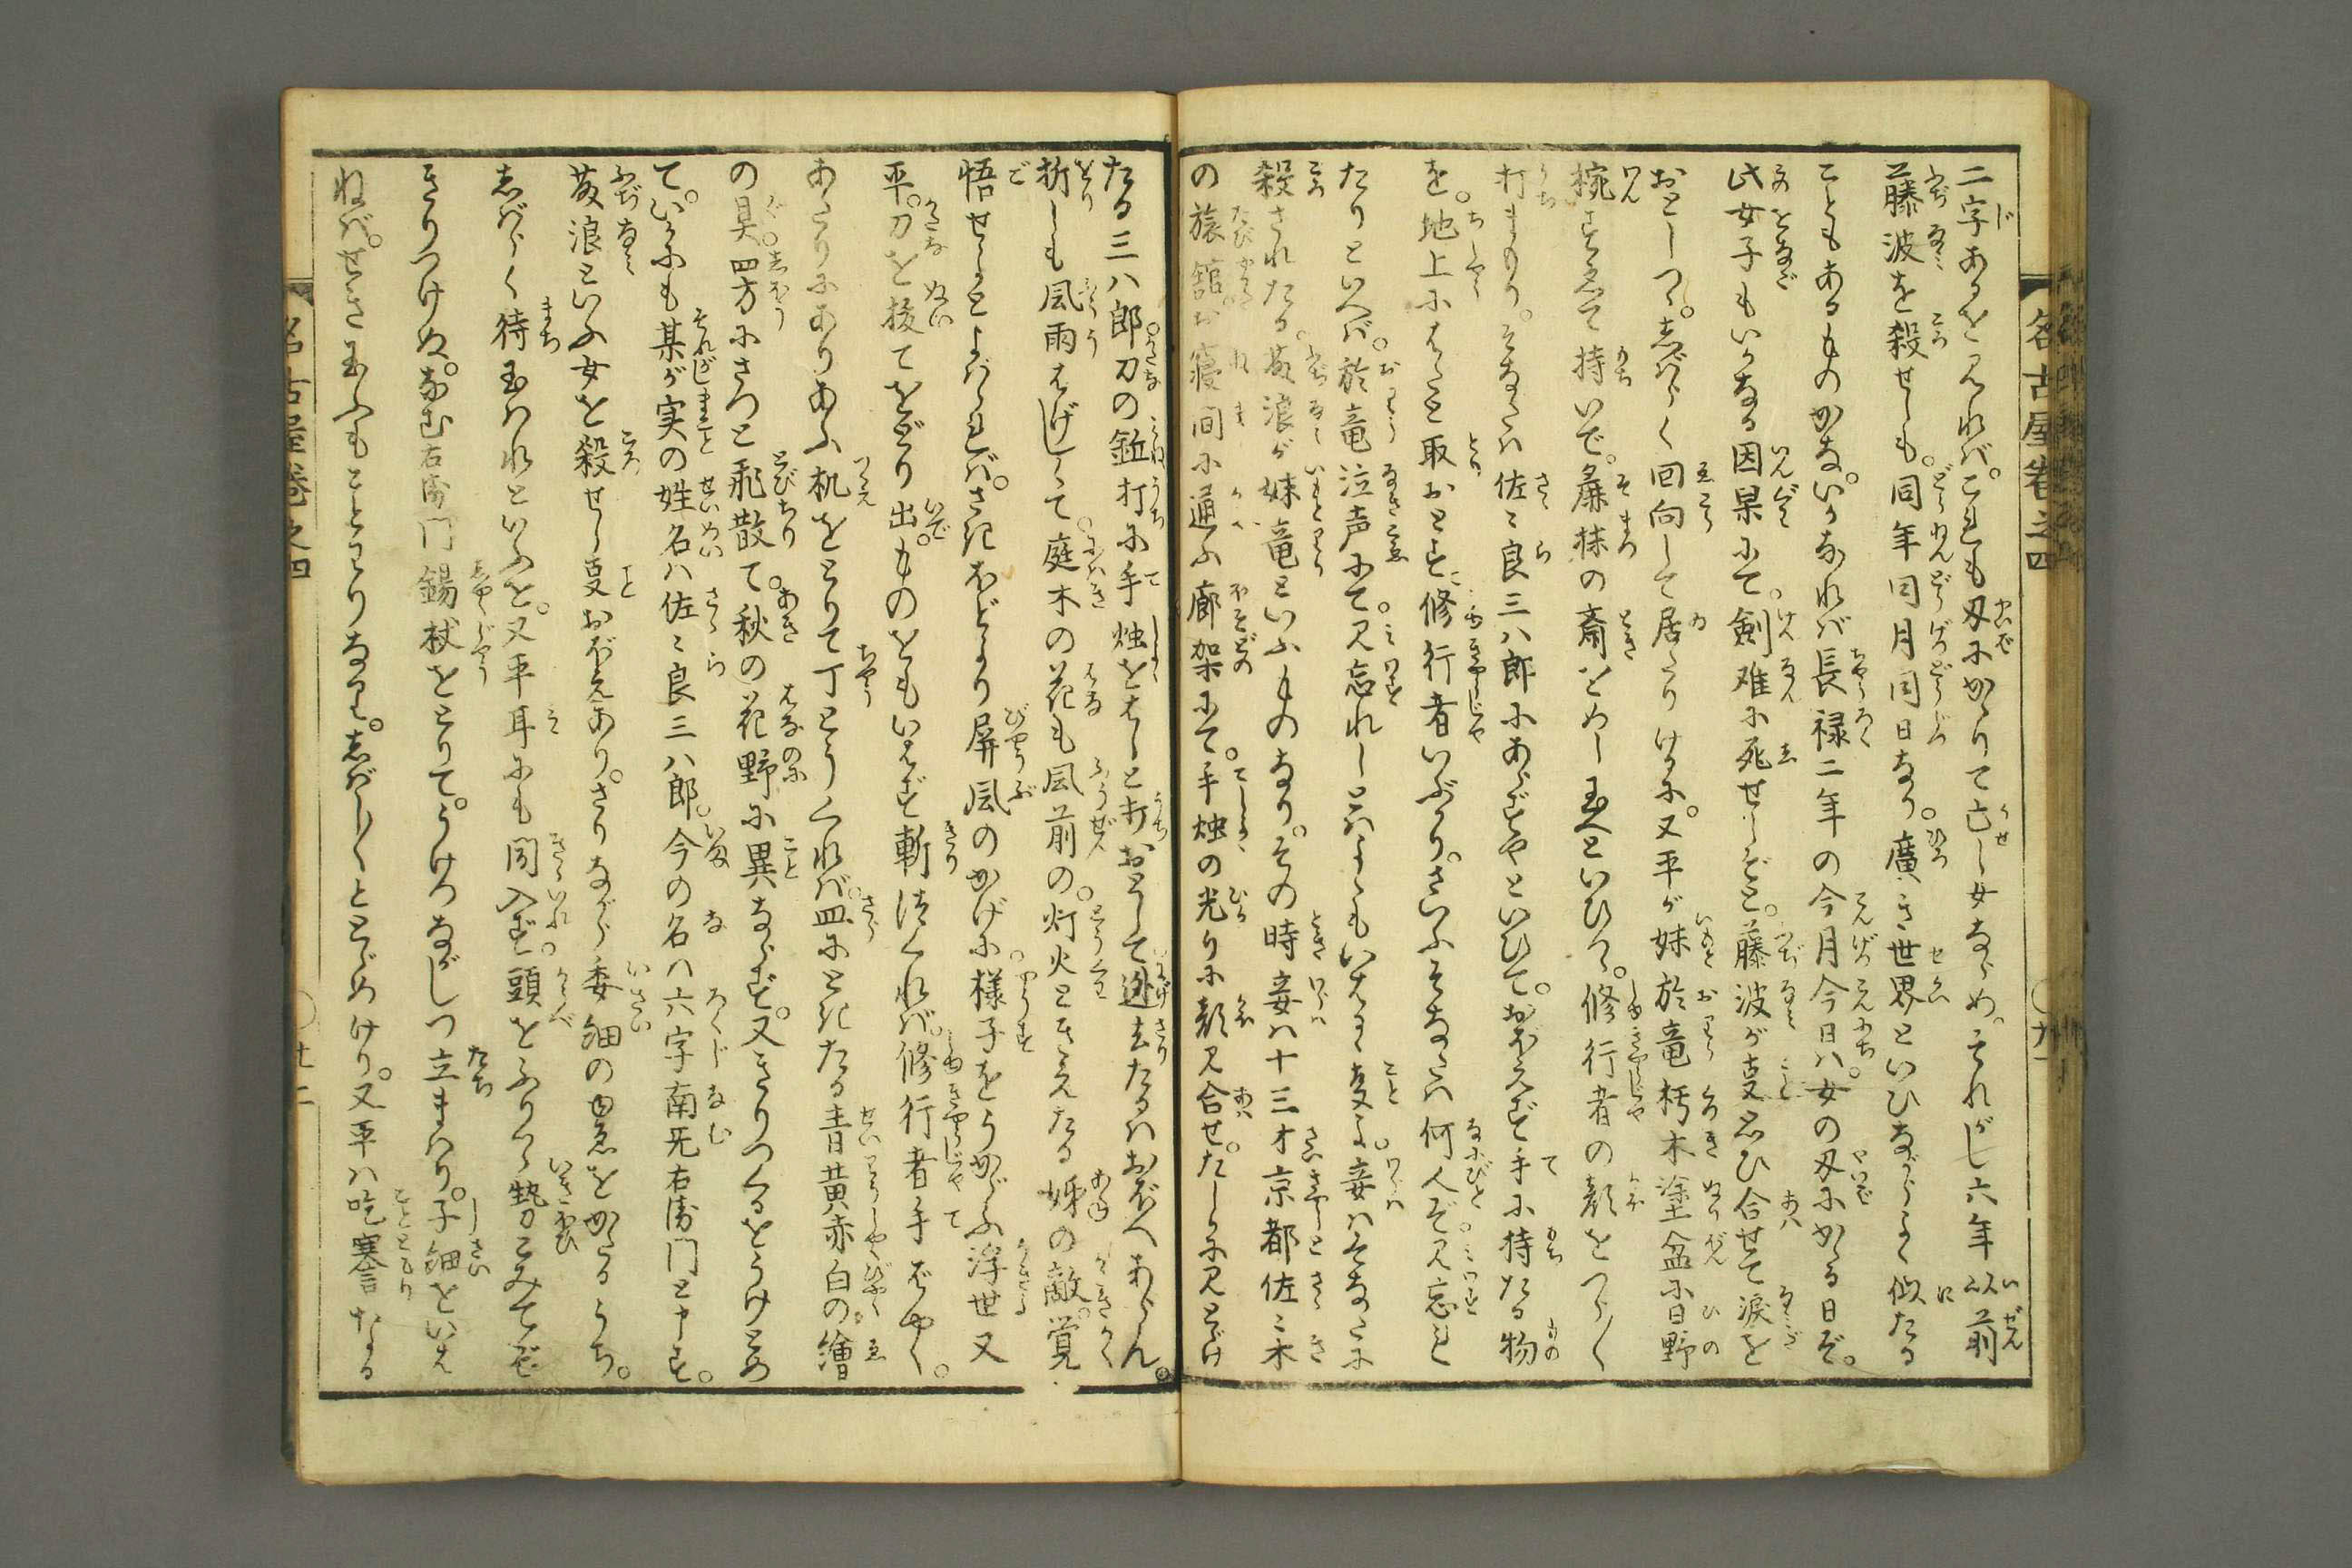 二字あるを見れば。これも刃にかゝりて亡し女ならめ。それがし六年以前
に藤波を殺せしも。同年同月同日なり。廣き世界といひながらよく似たる
こともあるものかな。いかなれば長禄二年の今月今日は。女の刃にかゝる日ぞ。
此女子もいかなる因果にて。剣难に死せしぞと。藤波が㕝思ひ合せて涙を
おとしつゝ。しばらく回向して居たりけるに。又平が妹於竜朽木塗盆に日野
椀すゑて持いで。麁抹の斎をめし玉へといひつゝ。修行者の顔をつら〱
打まもり。そなたは佐々良三八郎にあらずやといひて。おぼえず手に持たる物
を。地上にはたと取おとす。修行者いぶかり。さいふそなたは何人ぞ見忘れ
たりといへば。於竜泣声にて。見忘れしとはよくもいはるゝ㕝よ。妾はそなたに
殺されたる。藤浪が妹竜といふものなり。その時妾は十三才京都佐々木
の旅舘。お寝間に通ふ廊架にて。手燭の光りに顔見合せ。たしかに見とゞけ
たる三八郎。刀の鉐打に手燭をはしと打おとして迯去たるはおぼへあらん。
折しも風雨はげしくて。庭木の花も風前の。灯火ときえたる姊の敵。覚
悟せよとよばゝれば。さきほどより屏風のかげに。様子をうかゞふ浮世又
平。刀を抜てをどり出。ものをもいはず斬つくれば。修行者手ばやく。
あたりにありあふ机をとりて丁とうくれば。皿にときたる青黄赤白の繪
の具。四方にさつと飛散て。秋の花野に異ならず。又きりつくるをうけとめ
て。いかにも某が実の姓名は佐々良三八郎。今の名は六字南无右衛門と申す。
藤浪といふ女を殺せし㕝おぼえあり。さりながら委細の由恵をかたるうち。
しばらく待玉はれといふを。又平耳にも聞入ず。頭をふりつゝ勢こみてぞ
きりつけぬ。南無右衛門錫杖をとりて。うけつながしつ立まはり。子細をいは
ねば。せき玉ふもことわりなり。しばし〱ととゞめけり。又平は吃謇なる
名古屋巻之四
名古屋巻之四
廿二